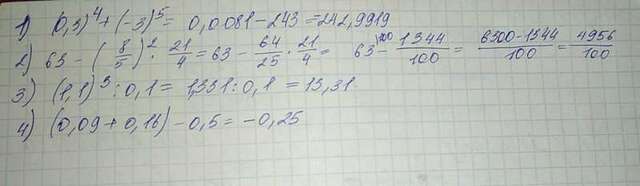 1) (0,3)⁴+(-3)⁵= 0,0081-243=242,9919
2) 63-(8/5)²·21/4=63-64/25·21/4= 63^100-1344/100=6300-1344/100=4956/100
3) (1,1)³:0,1=1,331:0,1=13,31.
4) (0,09+0,16)-0,5=-0,25